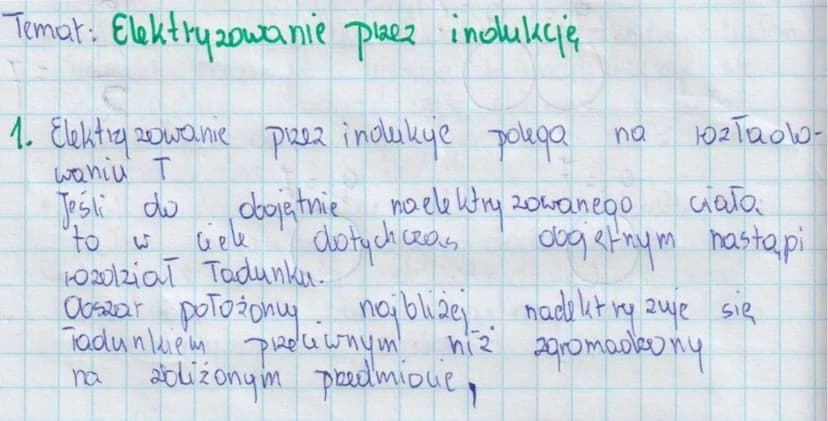 Temat: Elektryzowanie przez indukcję
1. Elektryzowanie przez indukcje polega na rozładowwaniu ł
Jeśli do obojętnie naelektryzowanego ciała
to w ciele dotychczas obojętnym nastąpi
rozdział ładunku.
Obszar położony najbliżej nadelektryzuje się
ładunkiem przeciwnym niż zgromadzony
na zbliżonym przedmiocie,